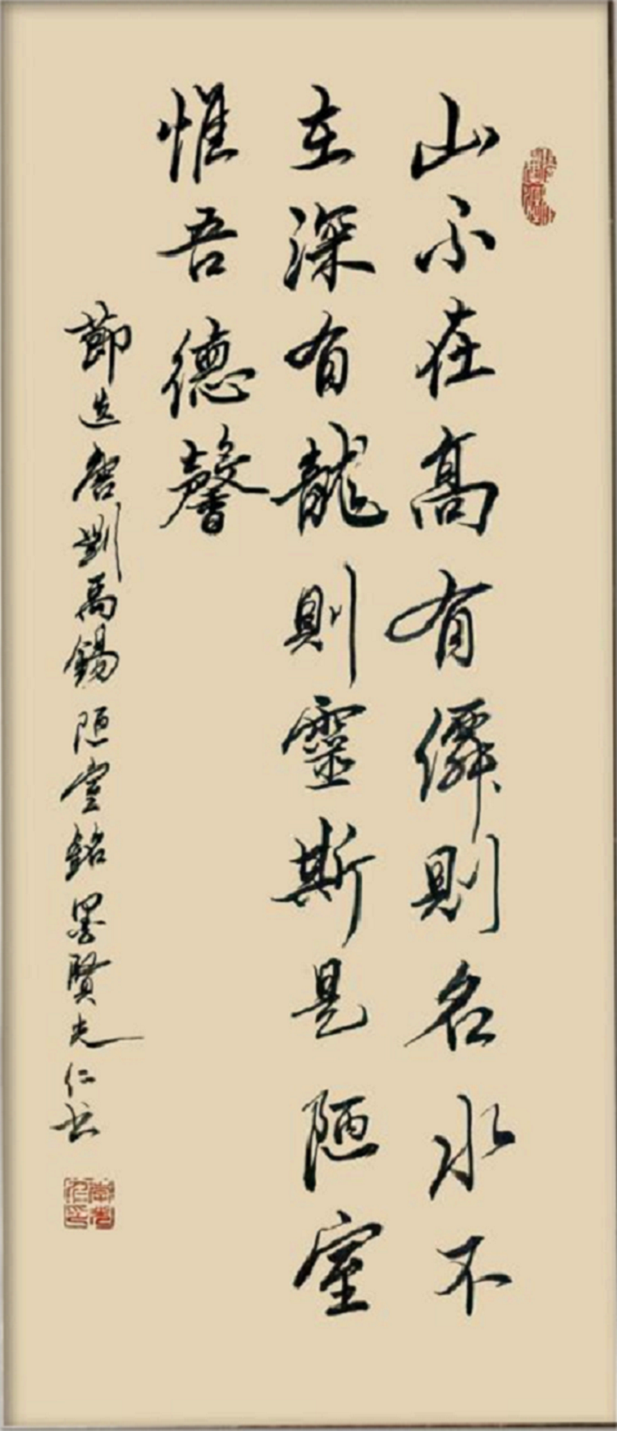 山不在高有僊則名水不
在深有龍則靈斯是陋室
惟吾德馨
節选唐劉禹錫陋室銘墨賢光仁书